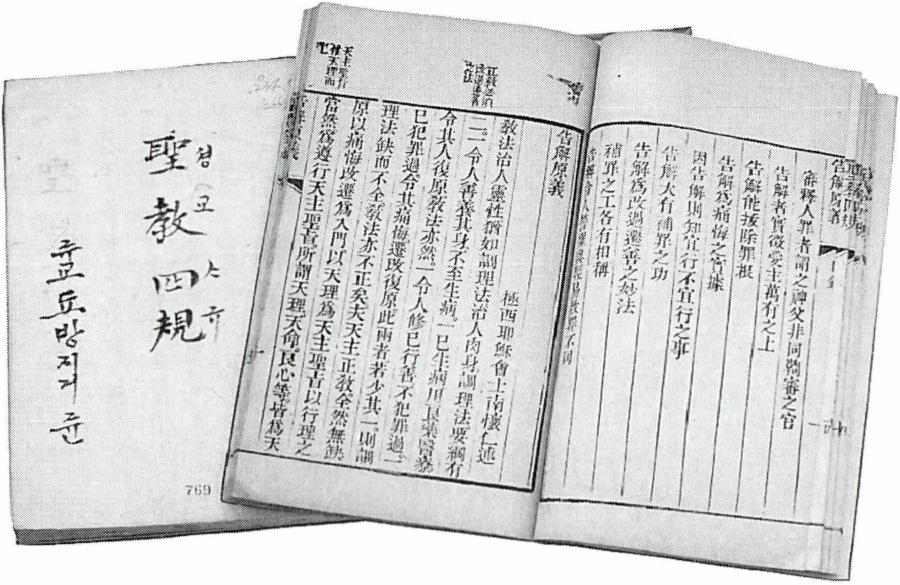 聖教四規
셩교사규
769
審釋人罪者謂之神父非同鞫審之官
告解者實徵愛主萬有之上
告解能拔除罪根
告解為痛悔之實據
因告解則知宜行不宜行之事
告解大有補罪之功
告解為改過遷善之妙法
補罪之工各有相稱
告解原義
極西耶穌會士南懷仁述
教法治人靈性猶如調理法治人肉身調理法要綱有
二一令人善養其身不至生病一已生病用良藥醫療
令其人復原教法亦然一令人修已行善不犯罪過一
已犯罪過令其痛悔遷改復原此兩者若少其一則調
理法缺而不全教法亦不正矣夫天主正教全然無缺
原以痛悔改遷為入門以天理為天主聖旨以行理之
當然為遵行天主聖旨所謂天理天命良心等皆為天